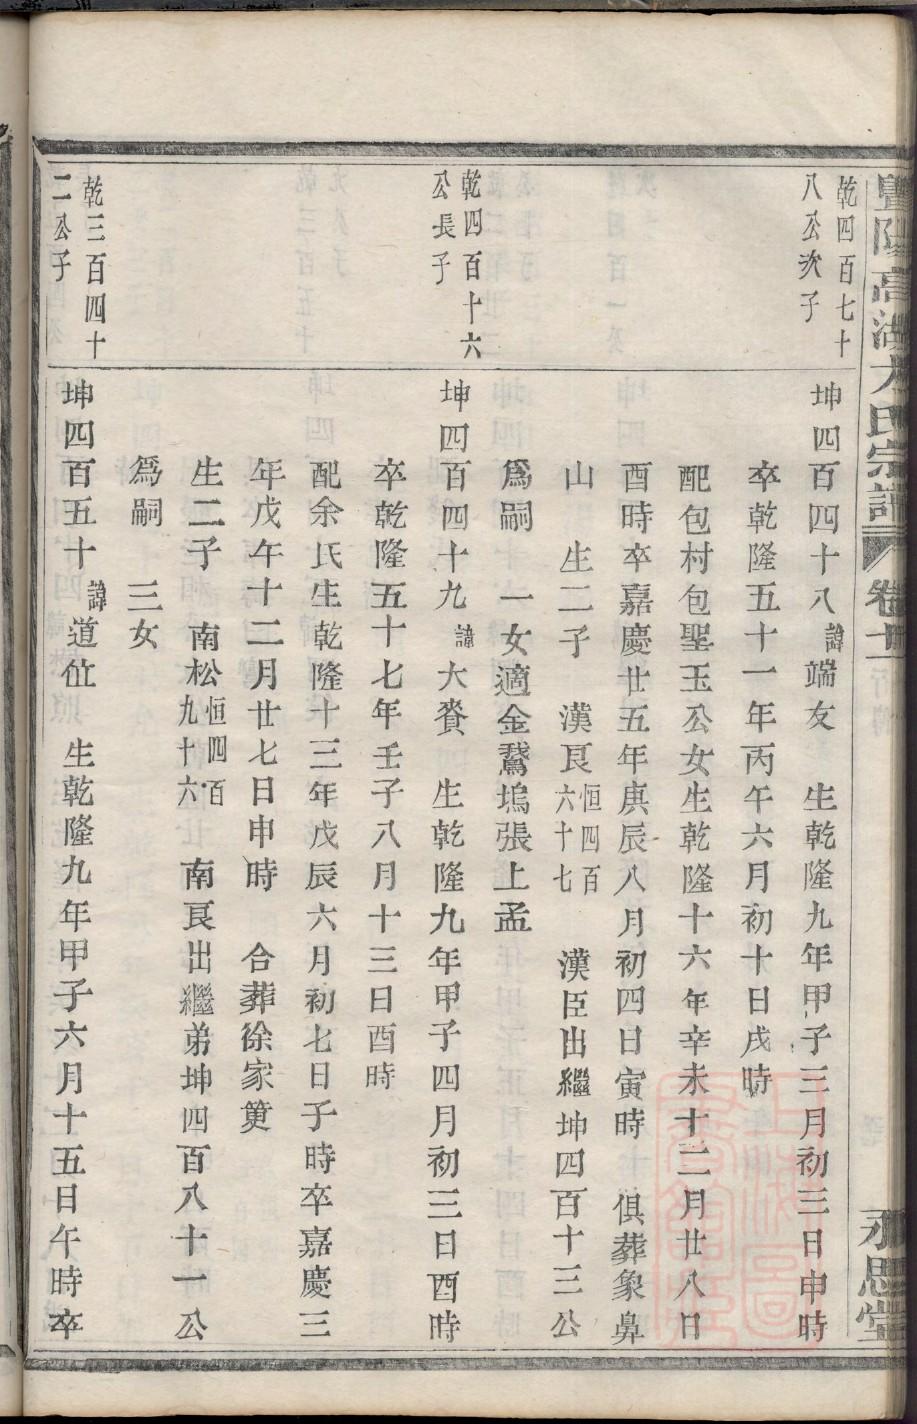 暨陽高湖方氏宗譜
卷十
永思堂
乾四百七十
八公次子
坤四百四十八諱端友 生乾隆九年甲子三月初三日申時
卒乾隆五十一年丙午六月初十日戌時
配包村包聖玉公女生乾隆十六年辛未十二月廿八日
酉時卒嘉慶廿五年庚辰八月初四日寅時 俱葬象鼻
山 生二子 漢良恒四百六十七 漢臣出繼坤四百十三公
爲嗣 一女適金鵞塢張上孟
乾四百十六
公長子
坤四百四十九諱大賚 生乾隆九年甲子四月初三日酉時
卒乾隆五十七年壬子八月十三日酉時
配余氏生乾隆十三年戊辰六月初七日子時卒嘉慶三
年戊午十二月廿七日申時 合葬徐家筻
生二子 南松恒四百九十六 南良出繼弟坤四百八十一公
爲嗣 三女
乾三百四十
二公子
坤四百五十諱道位 生乾隆九年甲子六月十五日午時卒